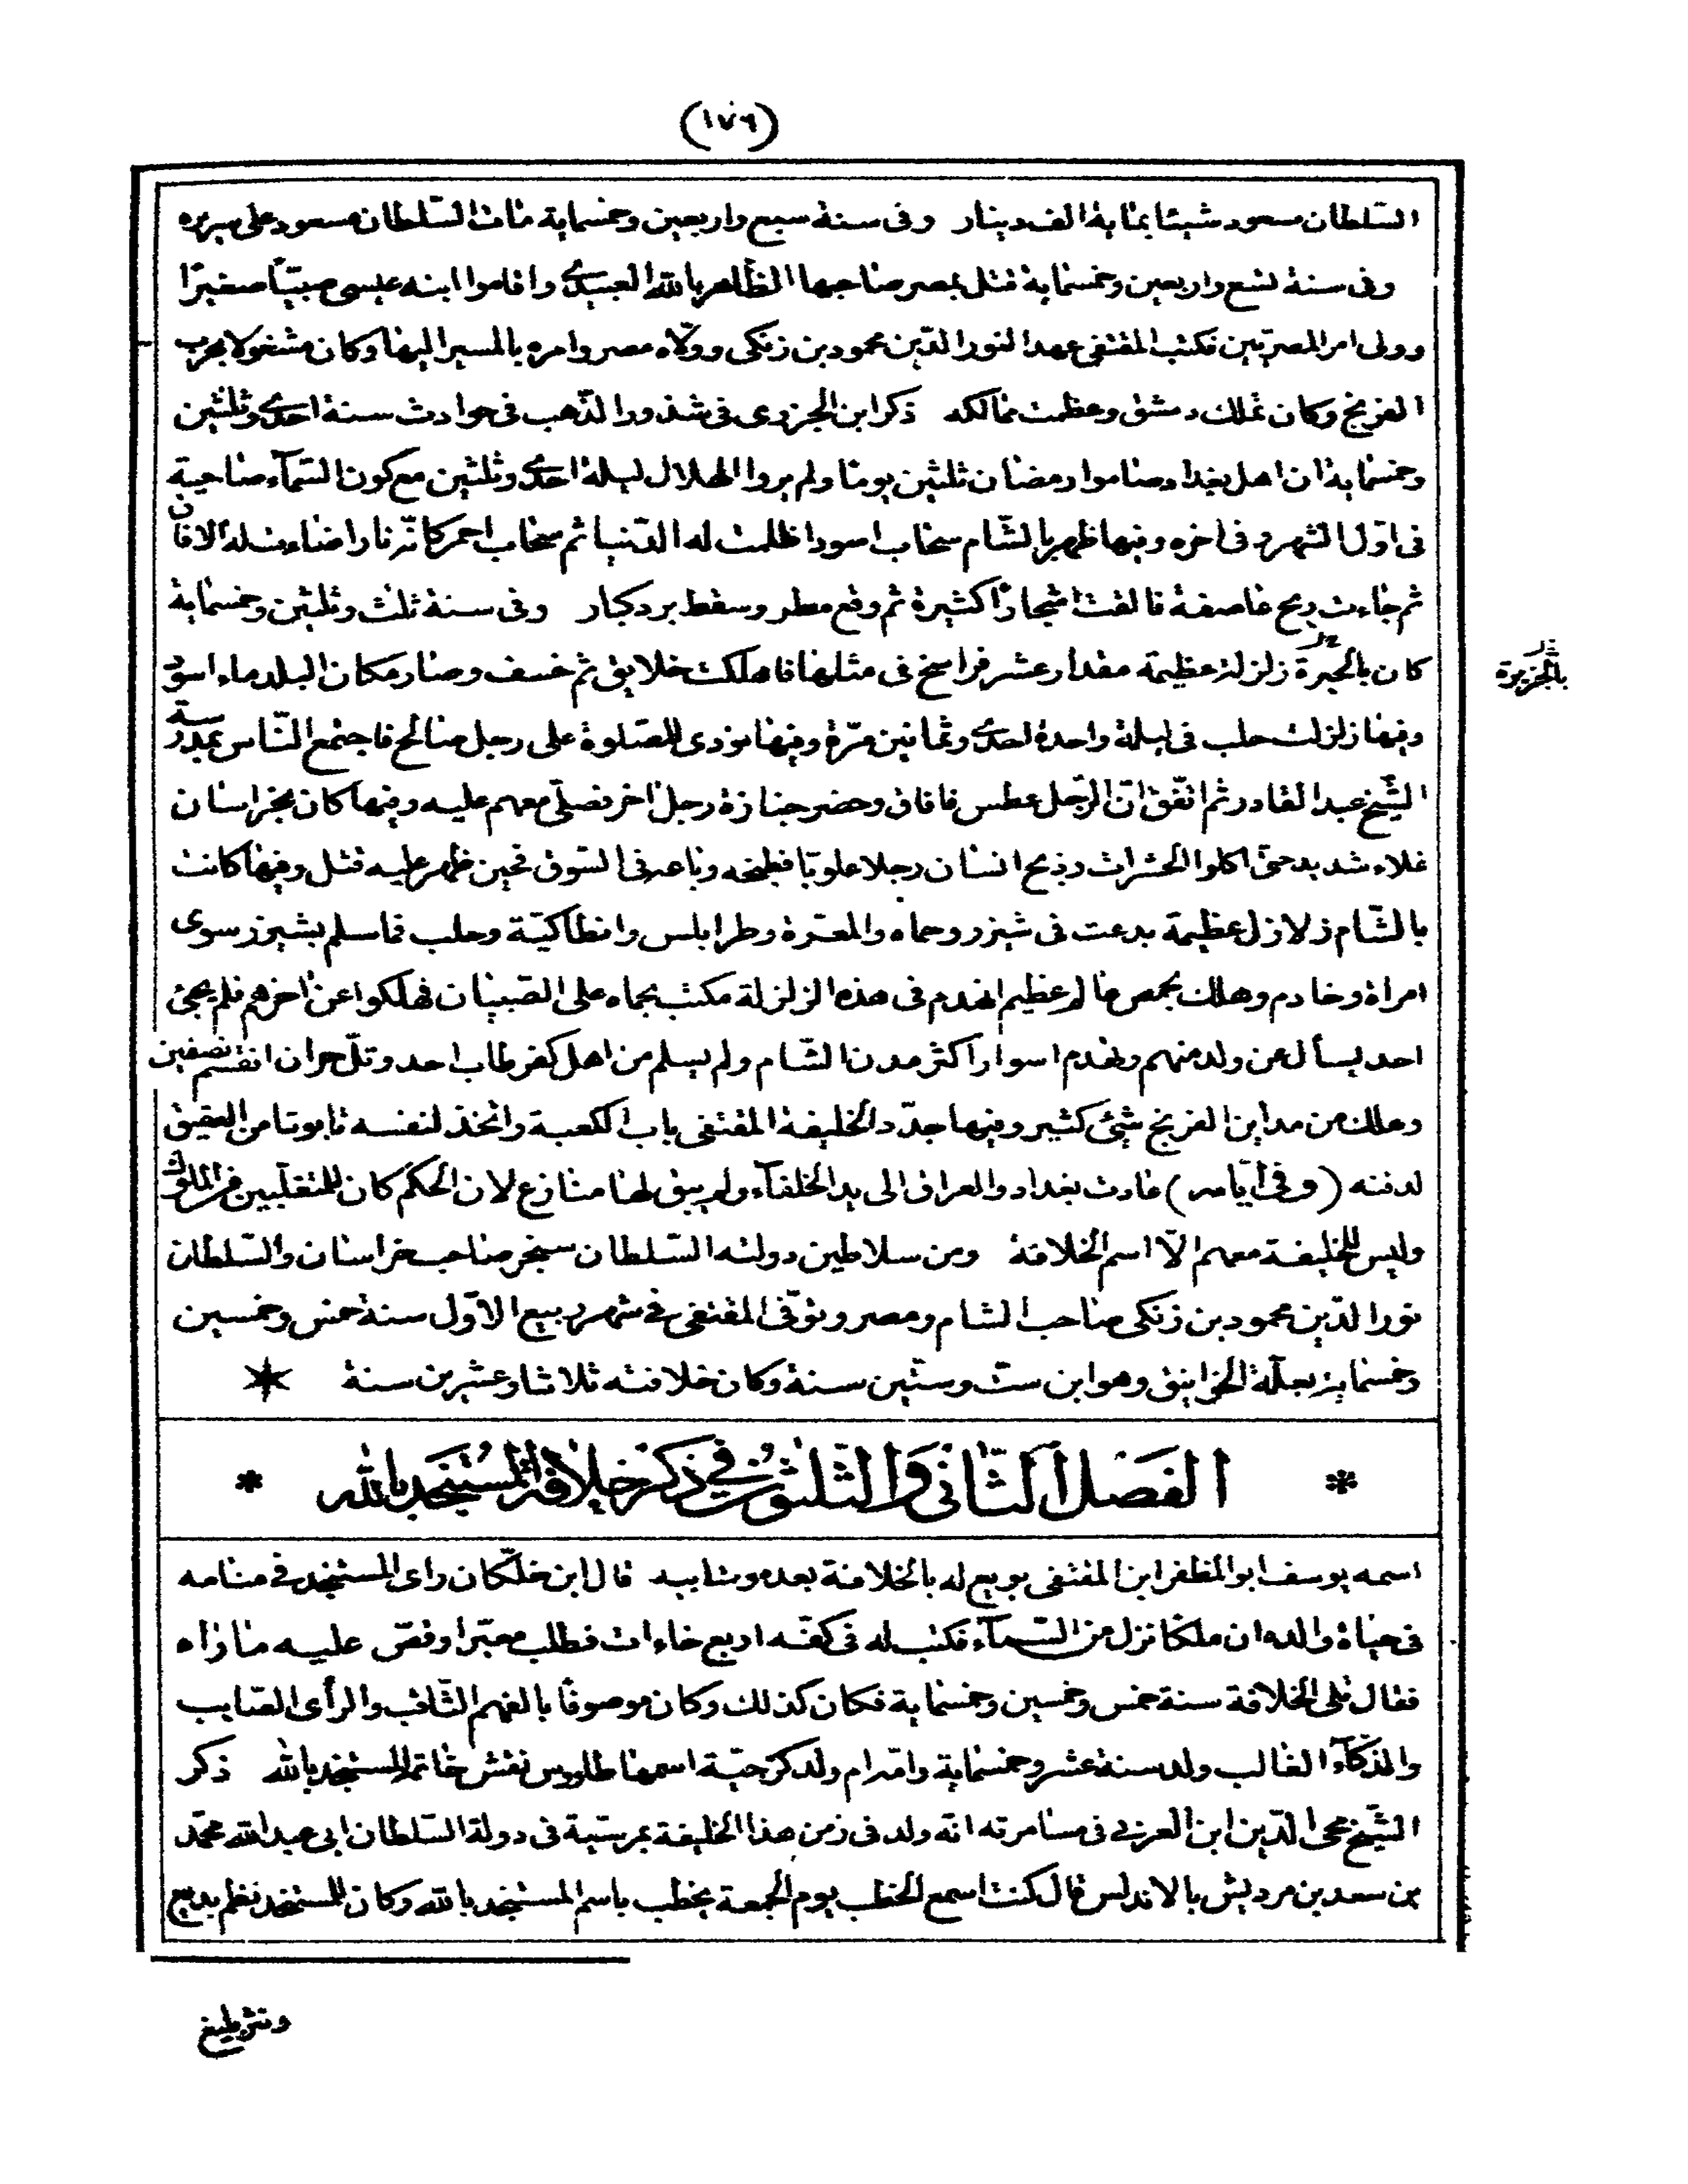 (١٧٦)
السّلطان مسعود شيئا بماية الف دينار وفى سنة سبع واربعين وخمسماية مات السّلطان مسعود على سريره
وفى سنة تسع واربعين وخمسماية قتل بمصر صاحبها الظّاهر بالله العبيدى واقاموا ابنه عيسى صبيّا صغيرًا
وولى امر المصريّين فكتب المقتفى عهدا لنور الدّين محمود بن زنكى وولّاه مصر وامره بالمسير اليها وكان مشغولا بحرب
الفرنج وكان تملك دمشق وعظمت ممالكه ذكر ابن الجزرى فى شذور الذّهب فى حوادث سنة احدى وثلثين
وخمسماية ان اهل بغداد صاموا رمضان ثلثين يوما ولم يروا الهلال ليلة احدى وثلثين مع كون السّمآء صاحية
فى اوّل الشهر وفى اخره وفيها ظهر بالشّام سحاب اسود اظلمت له الدّنيا ثم سحاب احمر كانّه نار اضاءت له الافاق
ثم جاءت ريح عاصفة فالقت اشجارًا كثيرة ثم وقع مطر وسقط برد كبار وفى سنة ثلث وثلثين وخمسماية
كان بالحيرة زلزلة عظيمة مقدار عشر فراسخ فى مثلها فاهلكت خلايق ثم خسف وصار مكان البلد ماء اسود
بالجزيرة
وفيها زلزلت حلب فى ليلة واحدة احدى وثمانين مرّة وفيها نودى للصّلوة على رجل صالح فاجتمع النّاس بمدرسة
الشّيخ عبد القادر ثم اتّفق انّ الرّجل عطس فافاق وحضر جنازة رجل اخر فصلّى معهم عليه وفيها كان بخراسان
غلاء شديد حتى اكلوا الحشرات وذبح انسان رجلا علويّا فطبخه وباعه فى السّوق فحين ظهر عليه قتل وفيها كانت
بالشّام زلازل عظيمة بدعت فى شيزر وحماه والمعرّة وطرابلس وانطاكيّة وحلب فما سلم بشيزر سوى
امراة وخادم وهلك بحمص عالم عظيم انهدم فى هذه الزلزلة مكتب بحماه على الصّبيان فهلكوا عن اخرهم فلم يجئ
احد يسأل عن ولد منهم وانهدم اسوار اكثر مدن الشّام ولم يسلم من اهل كفرطاب احد وتلّ حران انقسم نصفين
وهلك من مداين الفرنج شئ كثير وفيها جدّد الخليفة المقتفى باب الكعبة واتّخذ لنفسه تابوتا من العقيق
لدفنه (وفى أيّامه) عادت بغداد والعراق الى يد الخلفآء ولم يبق لها منازع لان الحكم كان للمتغلّبين من الملوك
وليس للخليفة معهم الّا اسم الخلافة ومن سلاطين دولته السّلطان سنجر صاحب خراسان والسّلطان
نور الدّين محمود بن زنكى صاحب الشام ومصر وتوفّى المقتفى فى شهر ربيع الاوّل سنة خمس وخمسين
وخمسماية بعلّة الخوانيق وهو ابن ستّ وستّين سنة وكان خلافته ثلاثا وعشرين سنة
* الفصل الثّانى والثّلثون فى ذكر خلافة المستنجد بالله *
اسمه يوسف ابو المظفر ابن المقتفى بويع له بالخلافة بعد موت ابيه قال ابن خلّكان راى المستنجد فى منامه
فى حياة والده ان ملكا نزل من السّمآء فكتب له فى كفّه اربع خاءات فطلب معبّرا وقصّ عليه ما رآه
فقال تلى الخلافة سنة خمس وخمسين وخمسماية فكان كذلك وكان موصوفًا بالفهم الثّاقب والرأى الصّايب
والذّكآء الغالب ولد سنة عشر وخمسماية وامّه ام ولد كرجيّة اسمها طاووس نقش خاتمه المستنجد بالله ذكر
الشّيخ محى الدّين ابن العربى فى مسامرته انّه ولد فى زمن هذا الخليفة بمرسية فى دولة السّلطان ابى عبد الله محمّد
بن سعد بن مردنيش بالاندلس قال كنت اسمع الخطب يوم الجمعة يخطب باسم المستنجد بالله وكان للمستنجد نظم بديع
ونثر بليغ